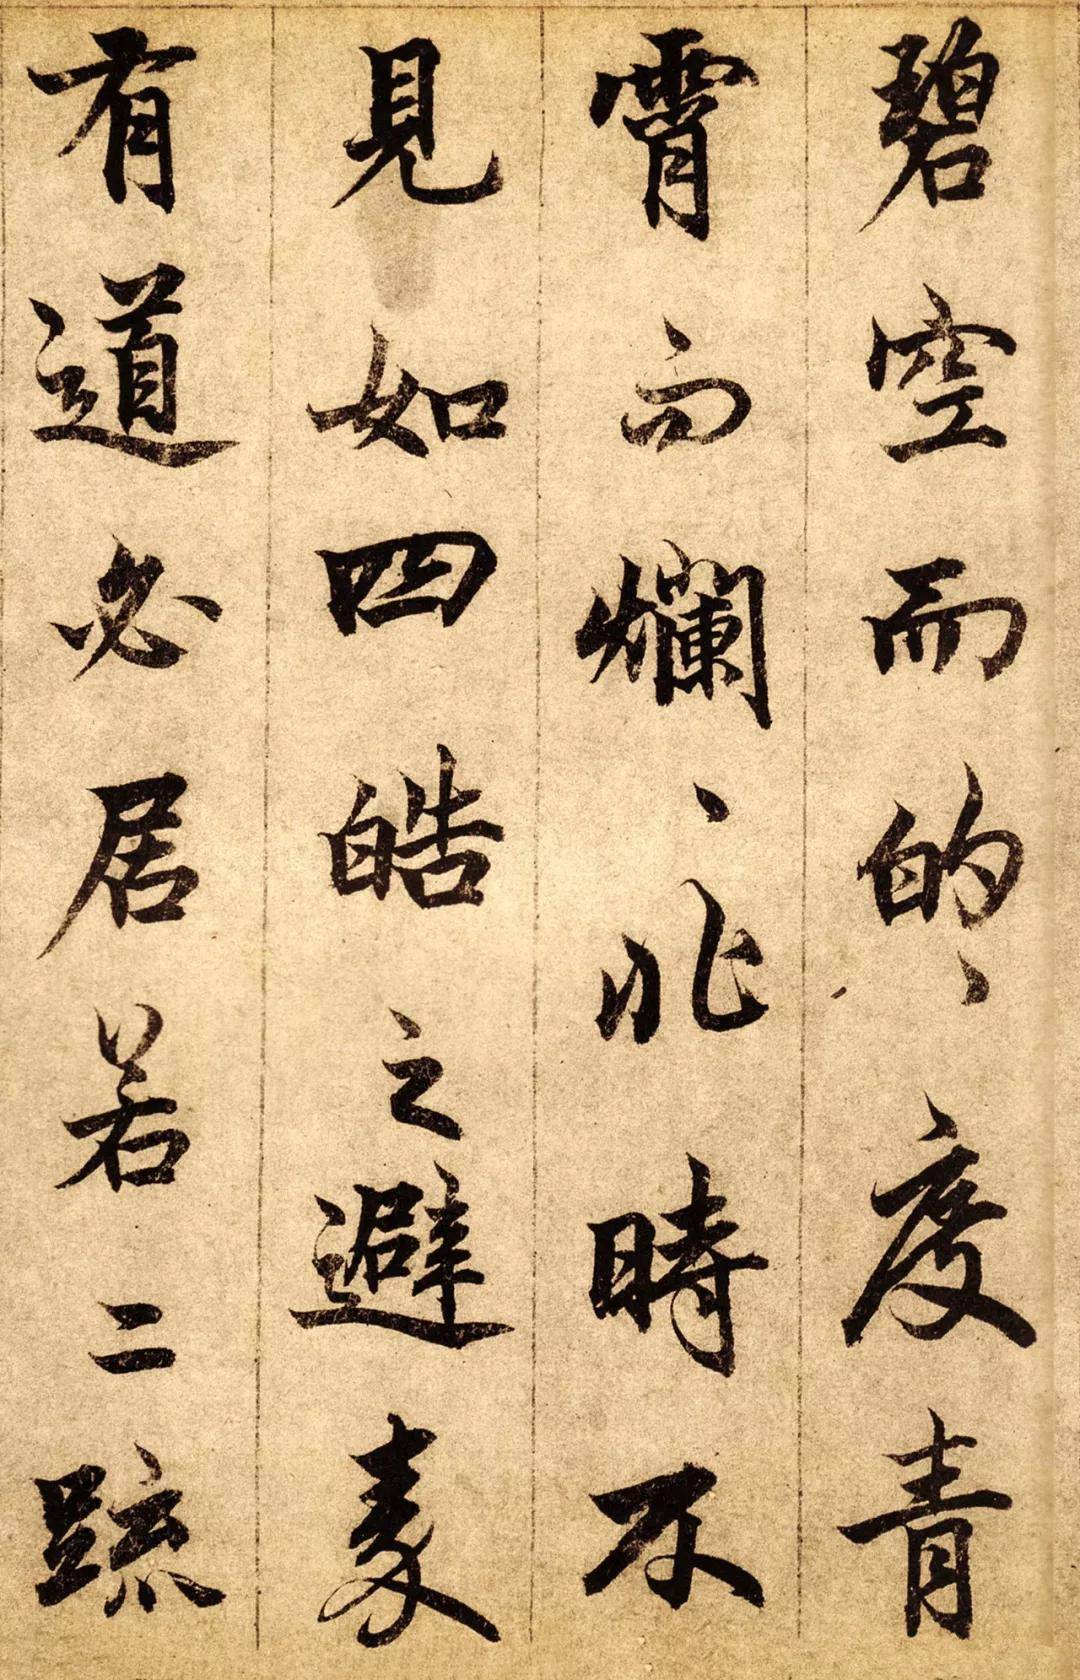 碧空而的〻度青
霄而爛〻非時不
見如四皓之避秦
有道必居若二踈